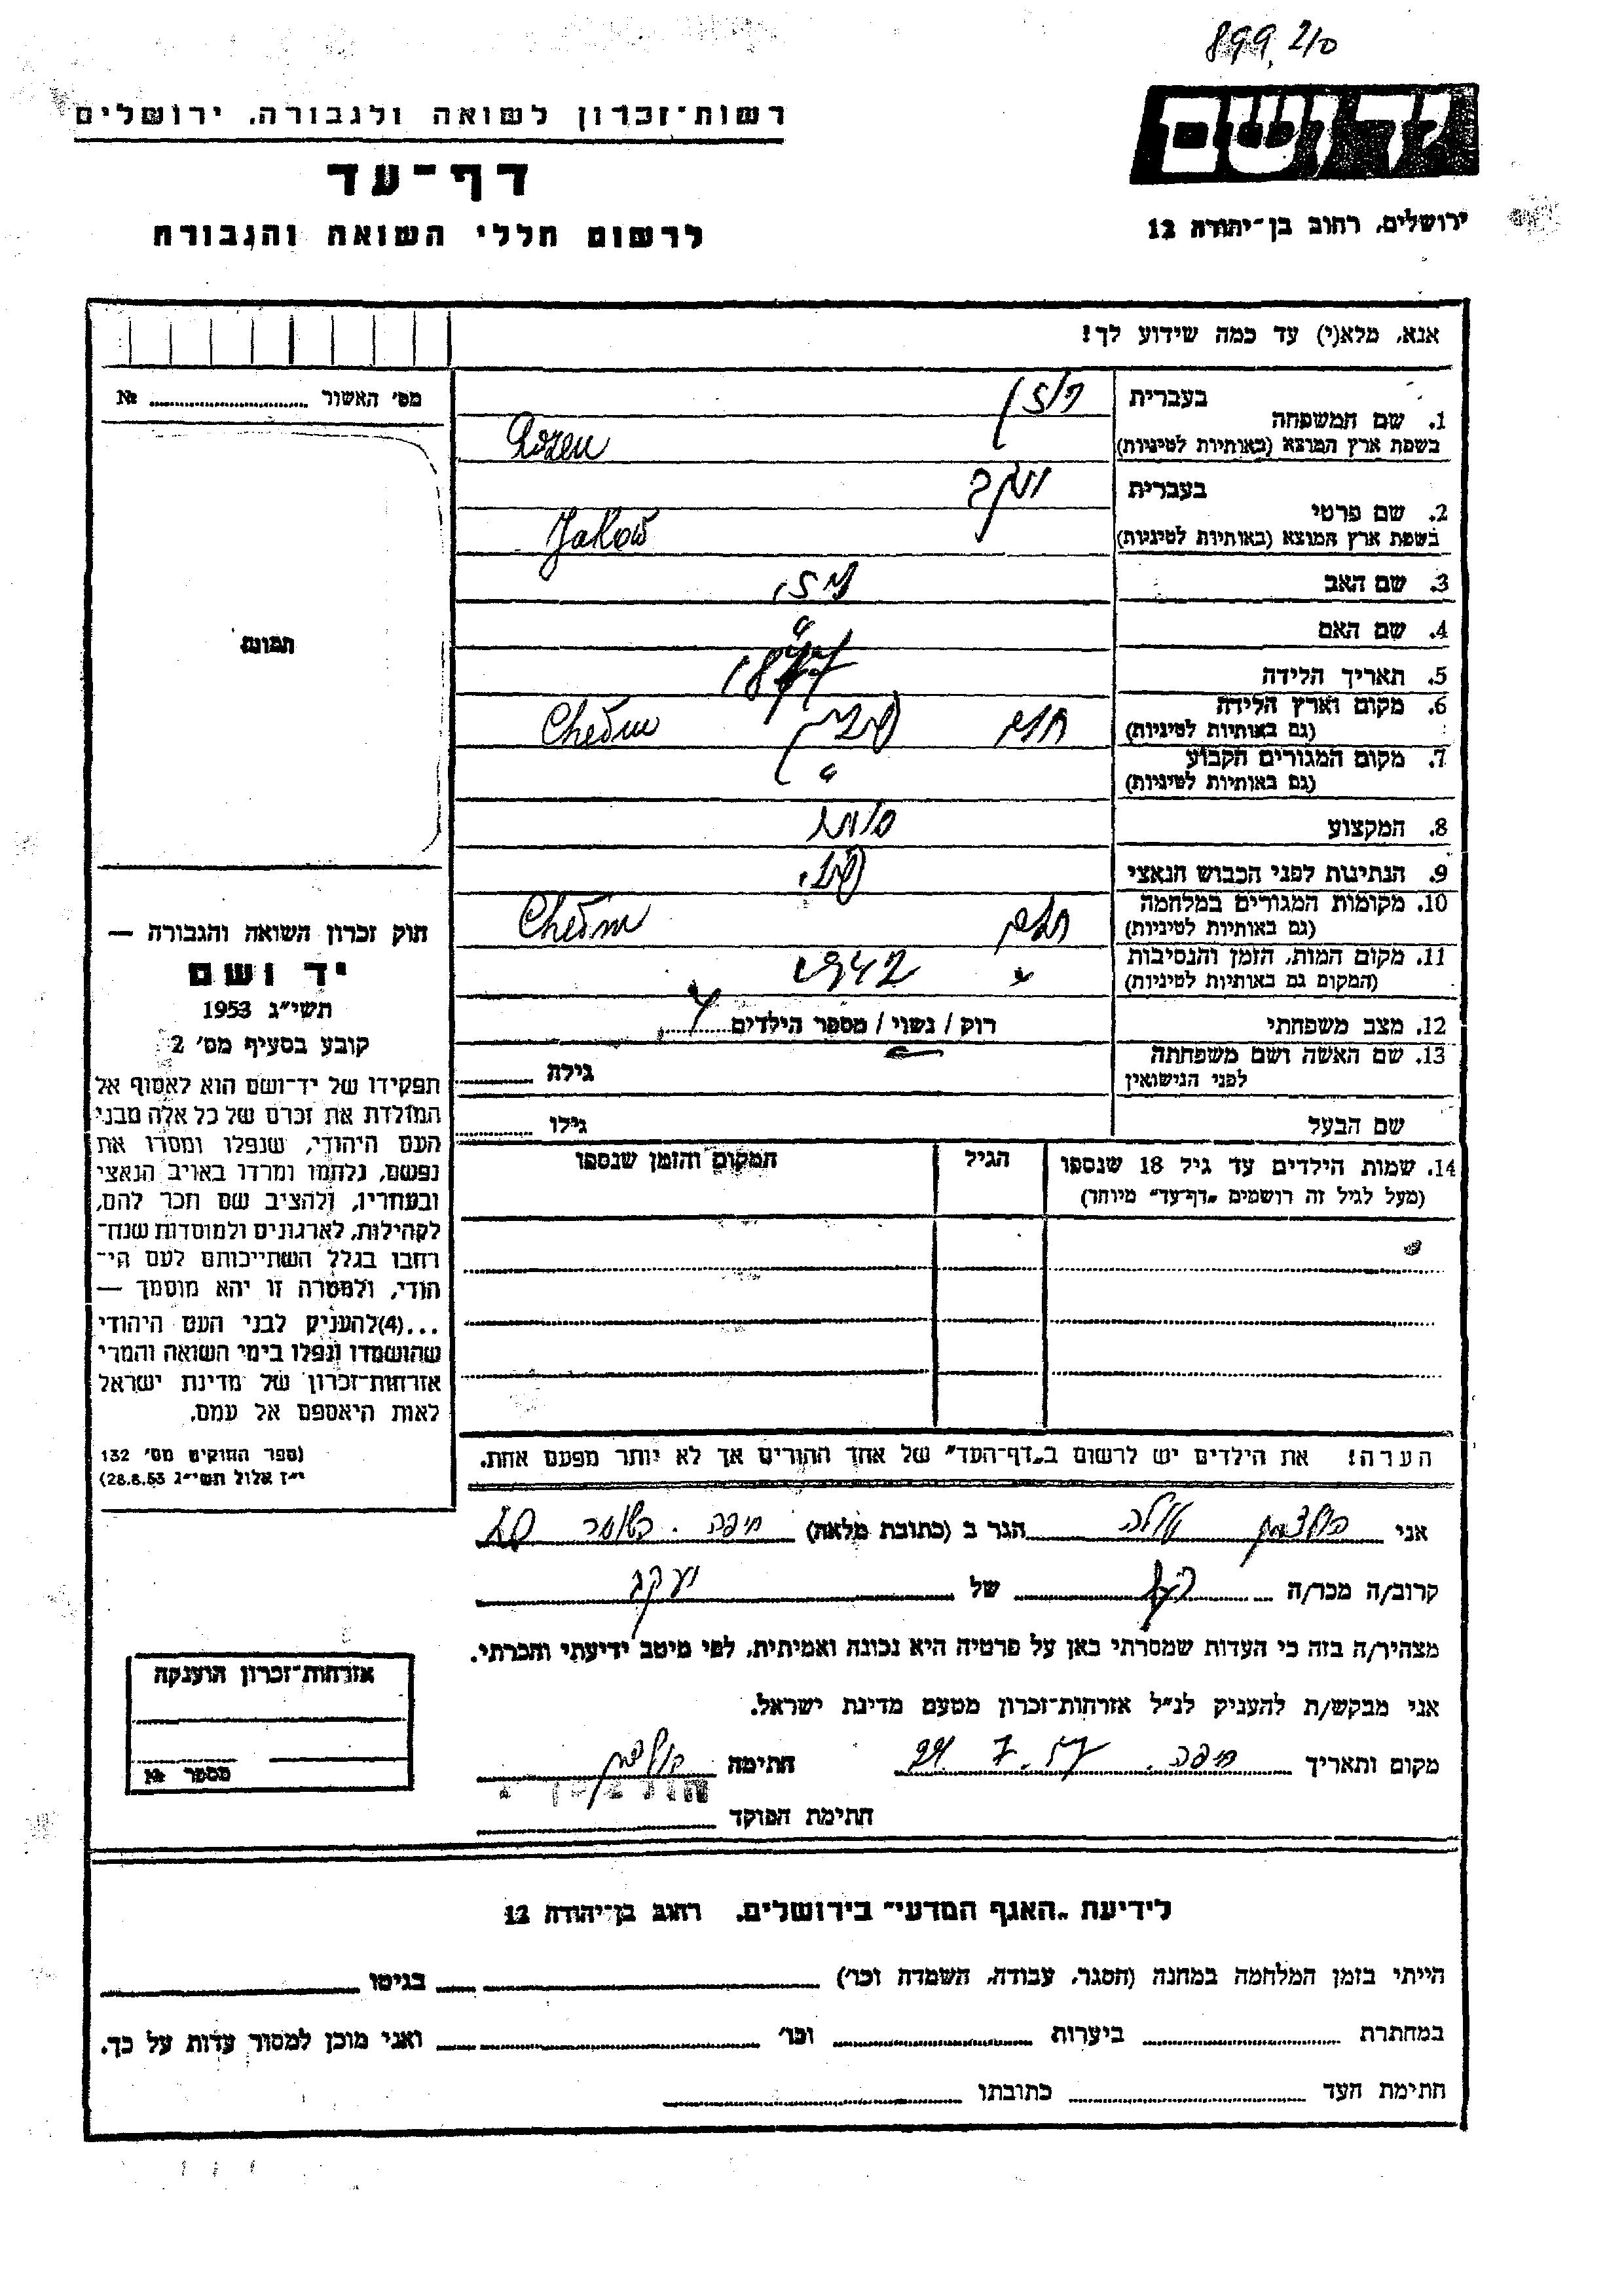 899,210
ידושם
רשות־זכרון לשואה ולגבורה, ירושלים
דף־עד
לרשום חללי השואה והגבורה
ירושלים, רחוב בן־יהודה 12
אנא, מלא(י) עד כמה שידוע לך!
מס׳ האשור № ..........
תמונה
1. שם המשפחה בעברית רוזן
בשפת ארץ המוצא (באותיות לטיניות) Rozen
2. שם פרטי בעברית יעקב
בשפת ארץ המוצא (באותיות לטיניות) Jakow
3. שם האב
4. שם האם
5. תאריך הלידה 1877
6. מקום וארץ הלידה (גם באותיות לטיניות) חלם פולין Chełm
7. מקום המגורים הקבוע (גם באותיות לטיניות) "
8. המקצוע סוחר
9. הנתינות לפני הכבוש הנאצי פול.
10. מקומות המגורים במלחמה (גם באותיות לטיניות) חלם Chełm
11. מקום המות, הזמן והנסיבות (המקום גם באותיות לטיניות) " 1942
12. מצב משפחתי רוק / נשוי / מספר הילדים 4
13. שם האשה ושם משפחתה לפני הנישואין גילה
שם הבעל גילו
14. שמות הילדים עד גיל 18 שנספו (מעל לגיל זה רושמים „דף־עד״ מיוחד) הגיל המקום והזמן שנספו
חוק זכרון השואה והגבורה —
יד ושם
תשי״ג 1953
קובע בסעיף מס׳ 2
תפקידו של יד־ושם הוא לאסוף אל
המולדת את זכרם של כל אלה מבני
העם היהודי, שנפלו ומסרו את
נפשם, נלחמו ומרדו באויב הנאצי
ובעוזריו, ולהציב שם וזכר להם,
לקהילות, לארגונים ולמוסדות שנח־
רבו בגלל השתייכותם לעם הי־
הודי, ולמטרה זו יהא מוסמך —
...(4) להעניק לבני העם היהודי
שהושמדו ונפלו בימי השואה והמרי
אזרחות־זכרון של מדינת ישראל
לאות היאספם אל עמם.
(ספר החוקים מס׳ 132
י״ז אלול תשי״ג 28.8.53)
הערה! את הילדים יש לרשום ב„דף־העד״ של אחד ההורים אך לא יותר מפעם אחת.
אני הולצמן הגר ב (כתובת מלאה) חיפה
קרוב/ה מכר/ה של יעקב
מצהיר/ה בזה כי העדות שמסרתי כאן על פרטיה היא נכונה ואמיתית, לפי מיטב ידיעתי והכרתי.
אני מבקש/ת להעניק לנ״ל אזרחות־זכרון מטעם מדינת ישראל.
מקום ותאריך חיפה. 29.7.57 חתימה הולצמן
חתימת הפוקד
אזרחות־זכרון הוענקה
מספר №
לידיעת „האגף המדעי״ בירושלים, רחוב בן־יהודה 12
הייתי בזמן המלחמה במחנה (הסגר, עבודה, השמדה וכו׳) בגיטו
במחתרת ביערות וכו׳ ואני מוכן למסור עדות על כך.
חתימת העד כתובתו